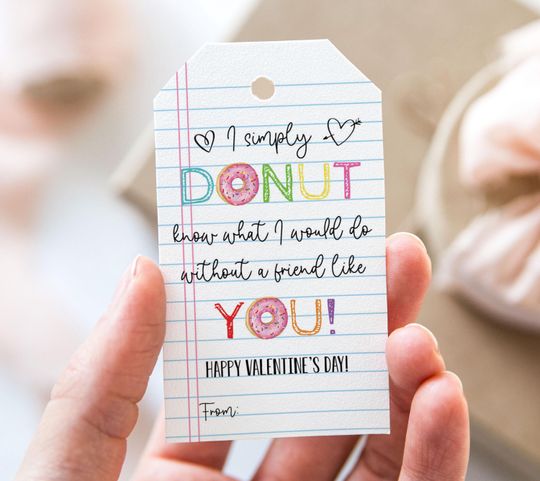 I simply
DONUT
know what I would do
without a friend like
YOU!
HAPPY VALENTINE'S DAY!
From: